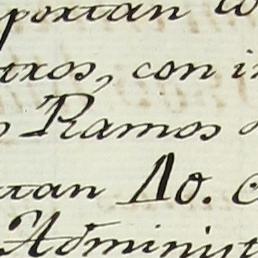 portan lo
tros, con i
s Ramos d
tan Do. C
Administ